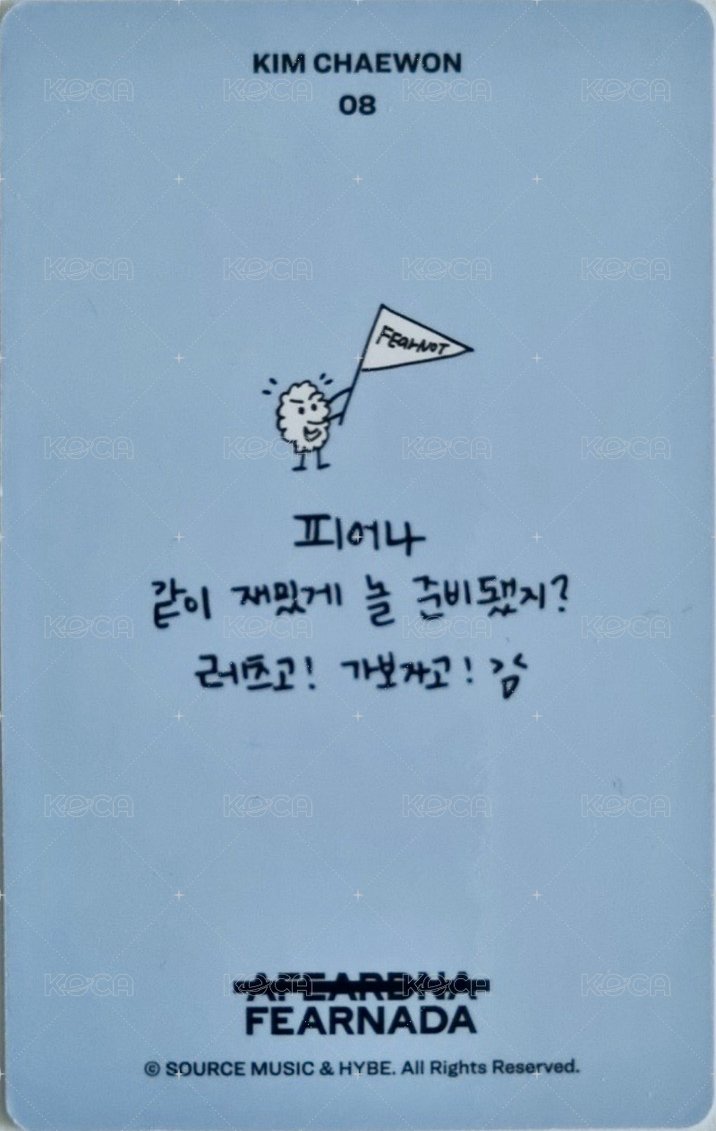 KIM CHAEWON
08
FEARNOT
피어나
같이 재밌게 놀 준비됐지?
레츠고! 가보자고! ><
AFEARDNA
FEARNADA
© SOURCE MUSIC & HYBE. All Rights Reserved.
KOCA